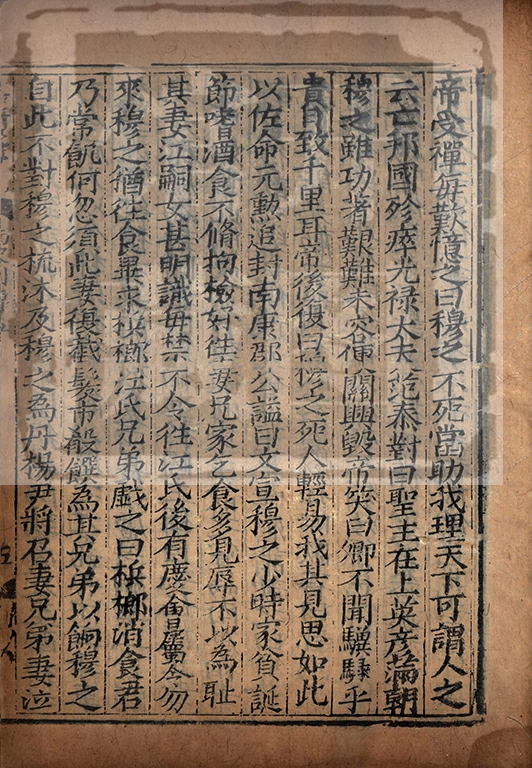 帝受禪每歎憶之曰穆之不死當助我理天下可謂人之
云亡邦國殄瘁光禄大夫范泰對曰聖主在上英彦滿朝
穆之雖功著艱難未容便關興毀帝笑曰卿不聞驥騄乎
貴日致千里耳帝後復曰穆之死人輕易我其見思如此
以佐命元勲追封南康郡公謚曰文宣穆之少時家貧誕
節嗜酒食不脩拘檢好往妻兄家乞食多見辱不以為耻
其妻江嗣女甚明識毎禁不令往江氏後有慶會屬令勿
來穆之猶往食畢求檳榔江氏兄弟戲之曰檳榔消食君
乃常飢何忽須此妻復截髮市殽饌為其兄弟以餉穆之
自此不對穆之梳沐及穆之為丹楊尹將召妻兄弟妻泣